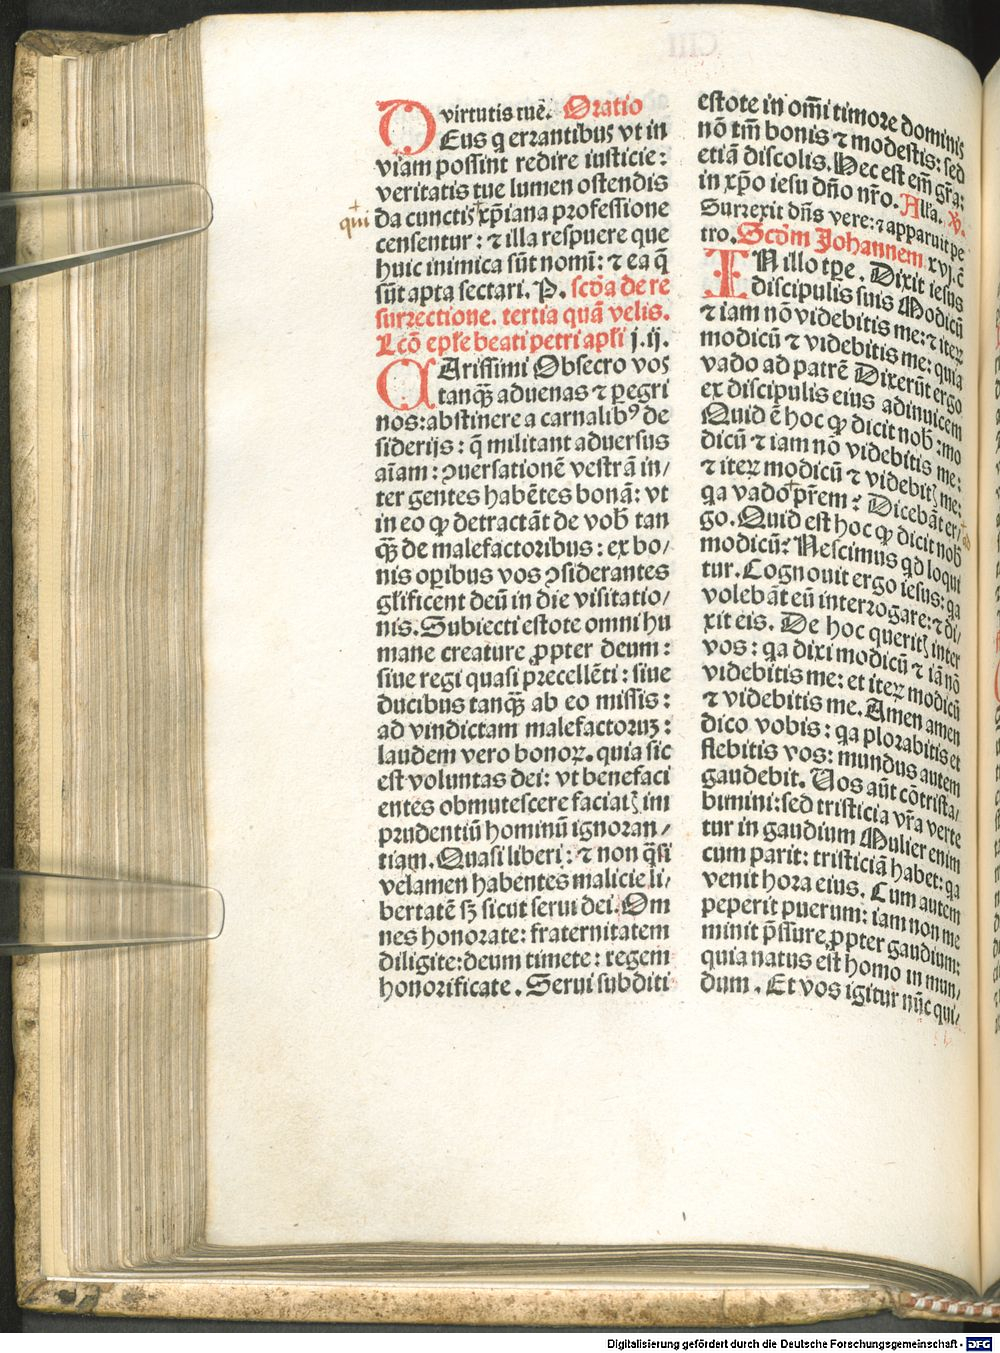 virtutis tuē. Oratio
DEus q errantibus vt in
viam possint redire iusticie:
veritatis tue lumen ostendis
qui
da cunctis xp̄iana professione
censentur: ⁊ illa respuere que
huic inimica sūt nomī: ⁊ ea q̄
sūt apta sectari. P. scd̄a de re
surrectione. tertia quā velis.
Lcō ep̄le beati petri apl̄i j. ij.
CArissimi Obsecro vos
tanq̄ʒ aduenas ⁊ p̲egri
nos: abstinere a carnalibꝰ de
siderijs: q̄ militant aduersus
aīam: ꝯuersationē vestrā in/
ter gentes habētes bonā: vt
in eo ꝙ detractāt de vob̄ tan
q̄ʒ de malefactoribus: ex bo/
nis op̲ibus vos ꝯsiderantes
gl̄ificent deū in die visitatio/
nis. Subiecti estote omni hu
mane creature ꝓpter deum:
siue regi quasi precellēti: siue
ducibus tanq̄ʒ ab eo missis:
ad vindictam malefactoruʒ:
laudem vero bonoꝝ. quia sic
est voluntas dei: vt benefaci
entes obmutescere faciatꝭ im
prudentiū hominū ignoran/
tiam. Quasi liberi: ⁊ non q̄si
velamen habentes malicie li/
bertatē sʒ sicut serui dei. Om
nes honorate: fraternitatem
diligite: deum timete: regem
honorificate. Serui subditi
estote in om̄i timore dominis
nō tm̄ bonis ⁊ modestis: sed
etiā discolis. Hec est em̄ gr̄a:
in xp̄o iesu dn̄o nr̄o. Alla. V.
Surrexit dn̄s vere: ⁊ apparuit pe
tro. Scd̄m Johannem. xvj. c̄
IN illo tp̄e. Dixit iesus
discipulis suis Modicū
⁊ iam nō videbitis me: ⁊ iteꝝ
modicū ⁊ videbitis me: quia
vado ad patrē Dixerūt ergo
ex discipulis eius adinuicem
Quid ē hoc ꝙ dicit nob̄: mo
dicū ⁊ iam nō videbitis me:
⁊ iteꝝ modicū ⁊ videbitꝭ me:
qa vado pr̄em: Dicebāt er/
ad
go. Quid est hoc ꝙ dicit nob̄
modicū: Nescimus qd loqui
tur. Cognouit ergo iesus: qa
volebāt eū interrogare: ⁊ di/
xit eis. De hoc queritꝭ inter
vos: qa dixi modicū ⁊ iā nō
videbitis me: et iteꝝ modicū
⁊ videbitis me. Amen amen
dico vobis: qa plorabitis et
flebitis vos: mundus autem
gaudebit. Uos aūt cōtrista/
bimini: sed tristicia vr̄a verte
tur in gaudium Mulier enim
cum parit: tristiciā habet: qa
venit hora eius. Cum autem
peperit puerum: iam non me
minit p̄ssure ꝓpter gaudium:
quia natus est homo in mun/
dum. Et vos igitur nūc qui/
Digitalisierung gefördert durch die Deutsche Forschungsgemeinschaft - DFG